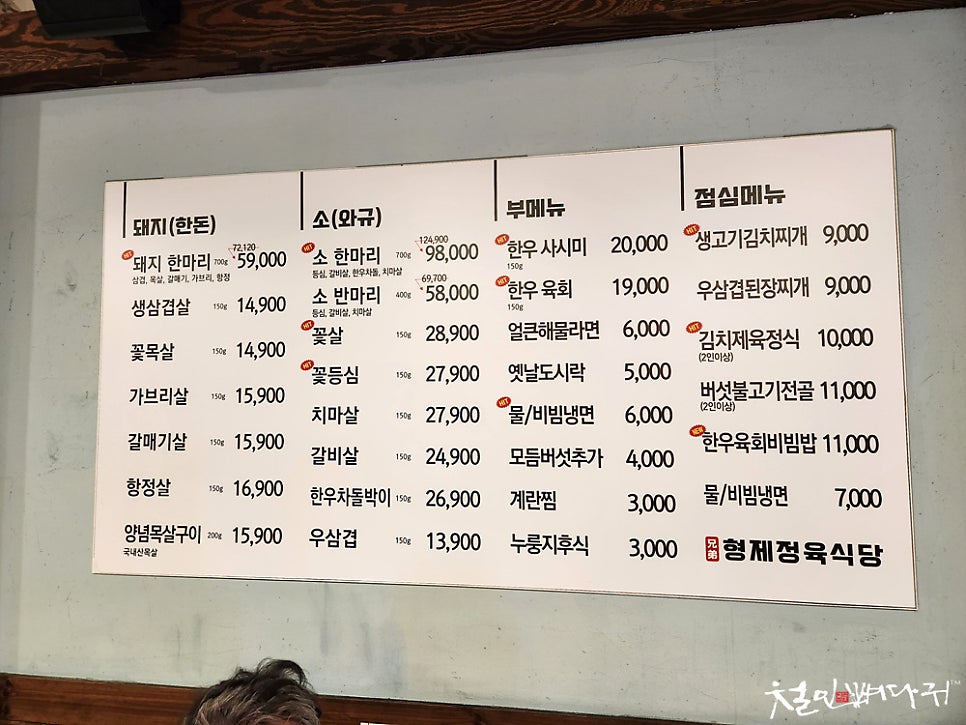 돼지(한돈)
HIT 돼지 한마리 700g 72,120 59,000
삼겹, 목살, 갈매기, 가브리, 항정
생삼겹살 150g 14,900
꽃목살 150g 14,900
가브리살 150g 15,900
갈매기살 150g 15,900
항정살 150g 16,900
양념목살구이 200g 15,900
국내산목살
소(와규)
HIT 소 한마리 700g 124,900 98,000
등심, 갈비살, 한우차돌, 치마살
소 반마리 400g 69,700 58,000
등심, 갈비살, 치마살
HIT 꽃살 150g 28,900
HIT 꽃등심 150g 27,900
치마살 150g 27,900
갈비살 150g 24,900
한우차돌박이 150g 26,900
우삼겹 150g 13,900
부메뉴
HIT 한우 사시미 20,000
150g
HIT 한우 육회 19,000
150g
얼큰해물라면 6,000
옛날도시락 5,000
HIT 물/비빔냉면 6,000
모듬버섯추가 4,000
계란찜 3,000
누룽지후식 3,000
점심메뉴
HIT 생고기김치찌개 9,000
우삼겹된장찌개 9,000
HIT 김치제육정식 10,000
(2인이상)
버섯불고기전골 11,000
(2인이상)
NEW 한우육회비빔밥 11,000
물/비빔냉면 7,000
兄弟 형제정육식당
철민뼈다귀 TM